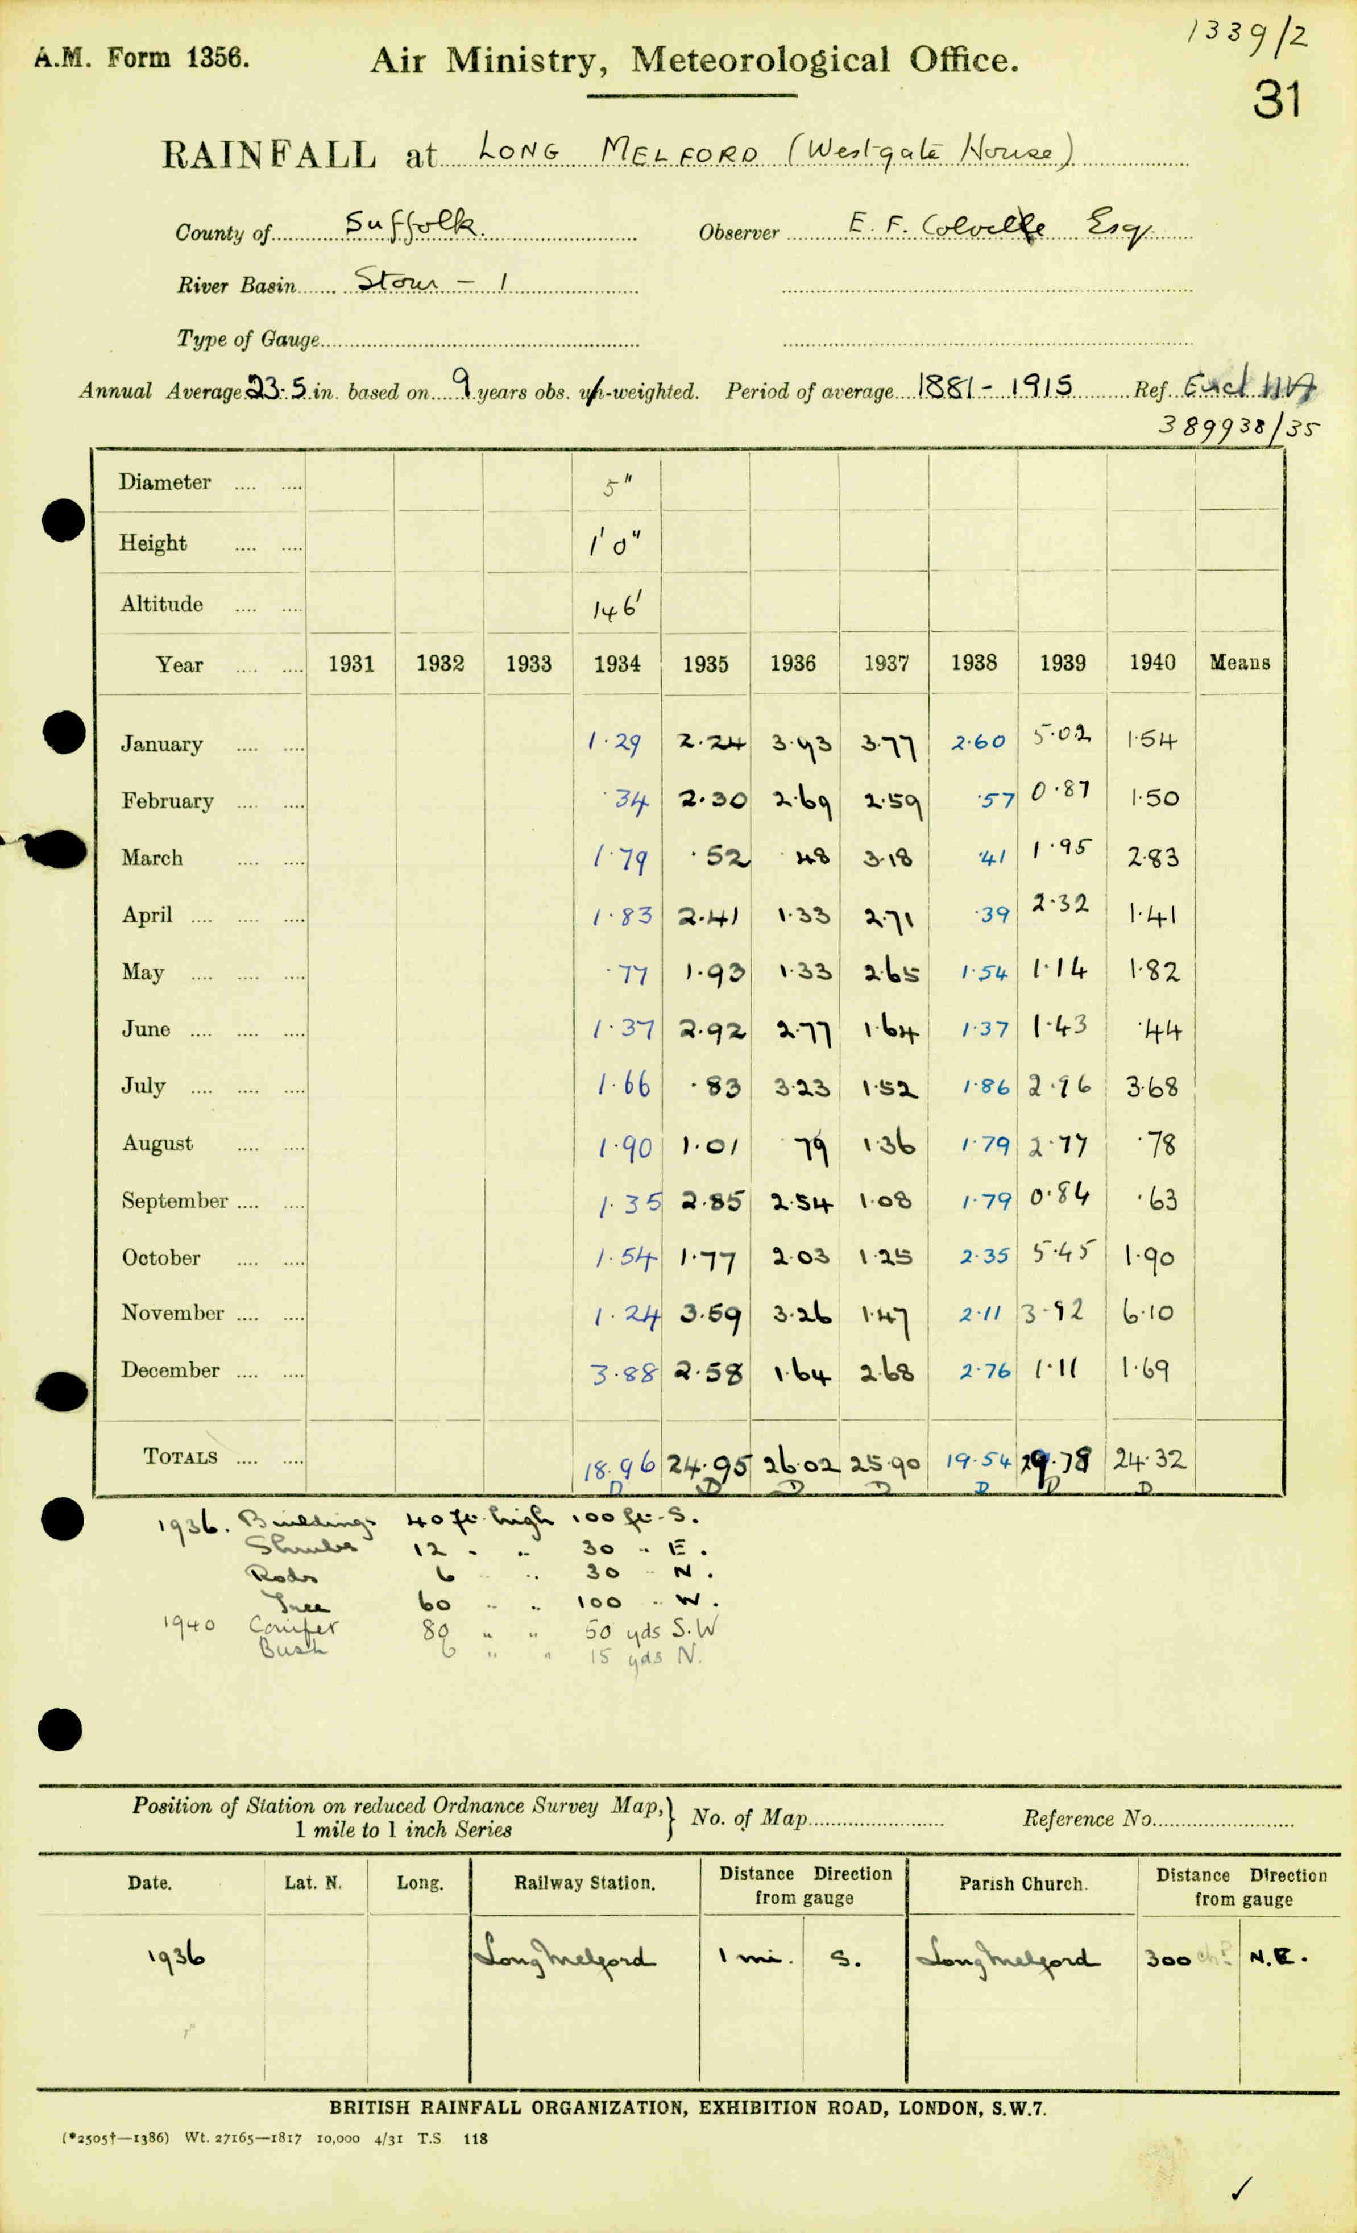 1339/2
A.M. Form 1356. Air Ministry, Meteorological Office.
31
RAINFALL at LONG MELFORD (Westgate House)
County of Suffolk. Observer E. F. Colville Esq.
River Basin Stour - 1
Type of Gauge
Annual Average 23.5 in. based on 9 years obs. un-weighted. Period of average 1881 - 1915 Ref. Encl 11A
389938/35
Diameter .... .... 5"
Height .... .... 1' 0"
Altitude .... .... 146'
Year .... .... 1931 1932 1933 1934 1935 1936 1937 1938 1939 1940 Means
January .... .... 1.29 2.24 3.93 3.77 2.60 5.02 1.54
February .... .... .34 2.30 2.69 2.59 .57 0.87 1.50
March .... .... 1.79 .52 .48 3.18 .41 1.95 2.83
April .... .... .... 1.83 2.41 1.33 2.71 .39 2.32 1.41
May .... .... .... .77 1.93 1.33 2.65 1.54 1.14 1.82
June .... .... .... 1.37 2.92 2.77 1.64 1.37 1.43 .44
July .... .... .... 1.66 .83 3.23 1.52 1.86 2.96 3.68
August .... .... 1.90 1.01 .79 1.36 1.79 2.77 .78
September .... .... 1.35 2.85 2.54 1.08 1.79 0.84 .63
October .... .... 1.54 1.77 2.03 1.25 2.35 5.45 1.90
November .... .... 1.24 3.59 3.26 1.47 2.11 3.92 6.10
December .... .... 3.88 2.58 1.64 2.68 2.76 1.11 1.69
TOTALS .... .... 18.96 24.95 26.02 25.90 19.54 29.78 24.32
D D D D D D D
1936. Buildings 40 ft. high 100 ft. S.
Shrubs 12 " " 30 " E.
Rods 6 " " 30 " N.
Tree 60 " " 100 " W.
1940 Conifer 80 " " 50 yds S.W
Bush 6 " " 15 yds N.
Position of Station on reduced Ordnance Survey Map,} No. of Map Reference No.
1 mile to 1 inch Series
Date. Lat. N. Long. Railway Station. Distance Direction from gauge Parish Church. Distance Direction from gauge
1936 Long Melford 1 mi. S. Long Melford 300 N.E.
BRITISH RAINFALL ORGANIZATION, EXHIBITION ROAD, LONDON, S.W.7.
(*2505†—1386) Wt. 27165—1817 10,000 4/31 T.S. 118